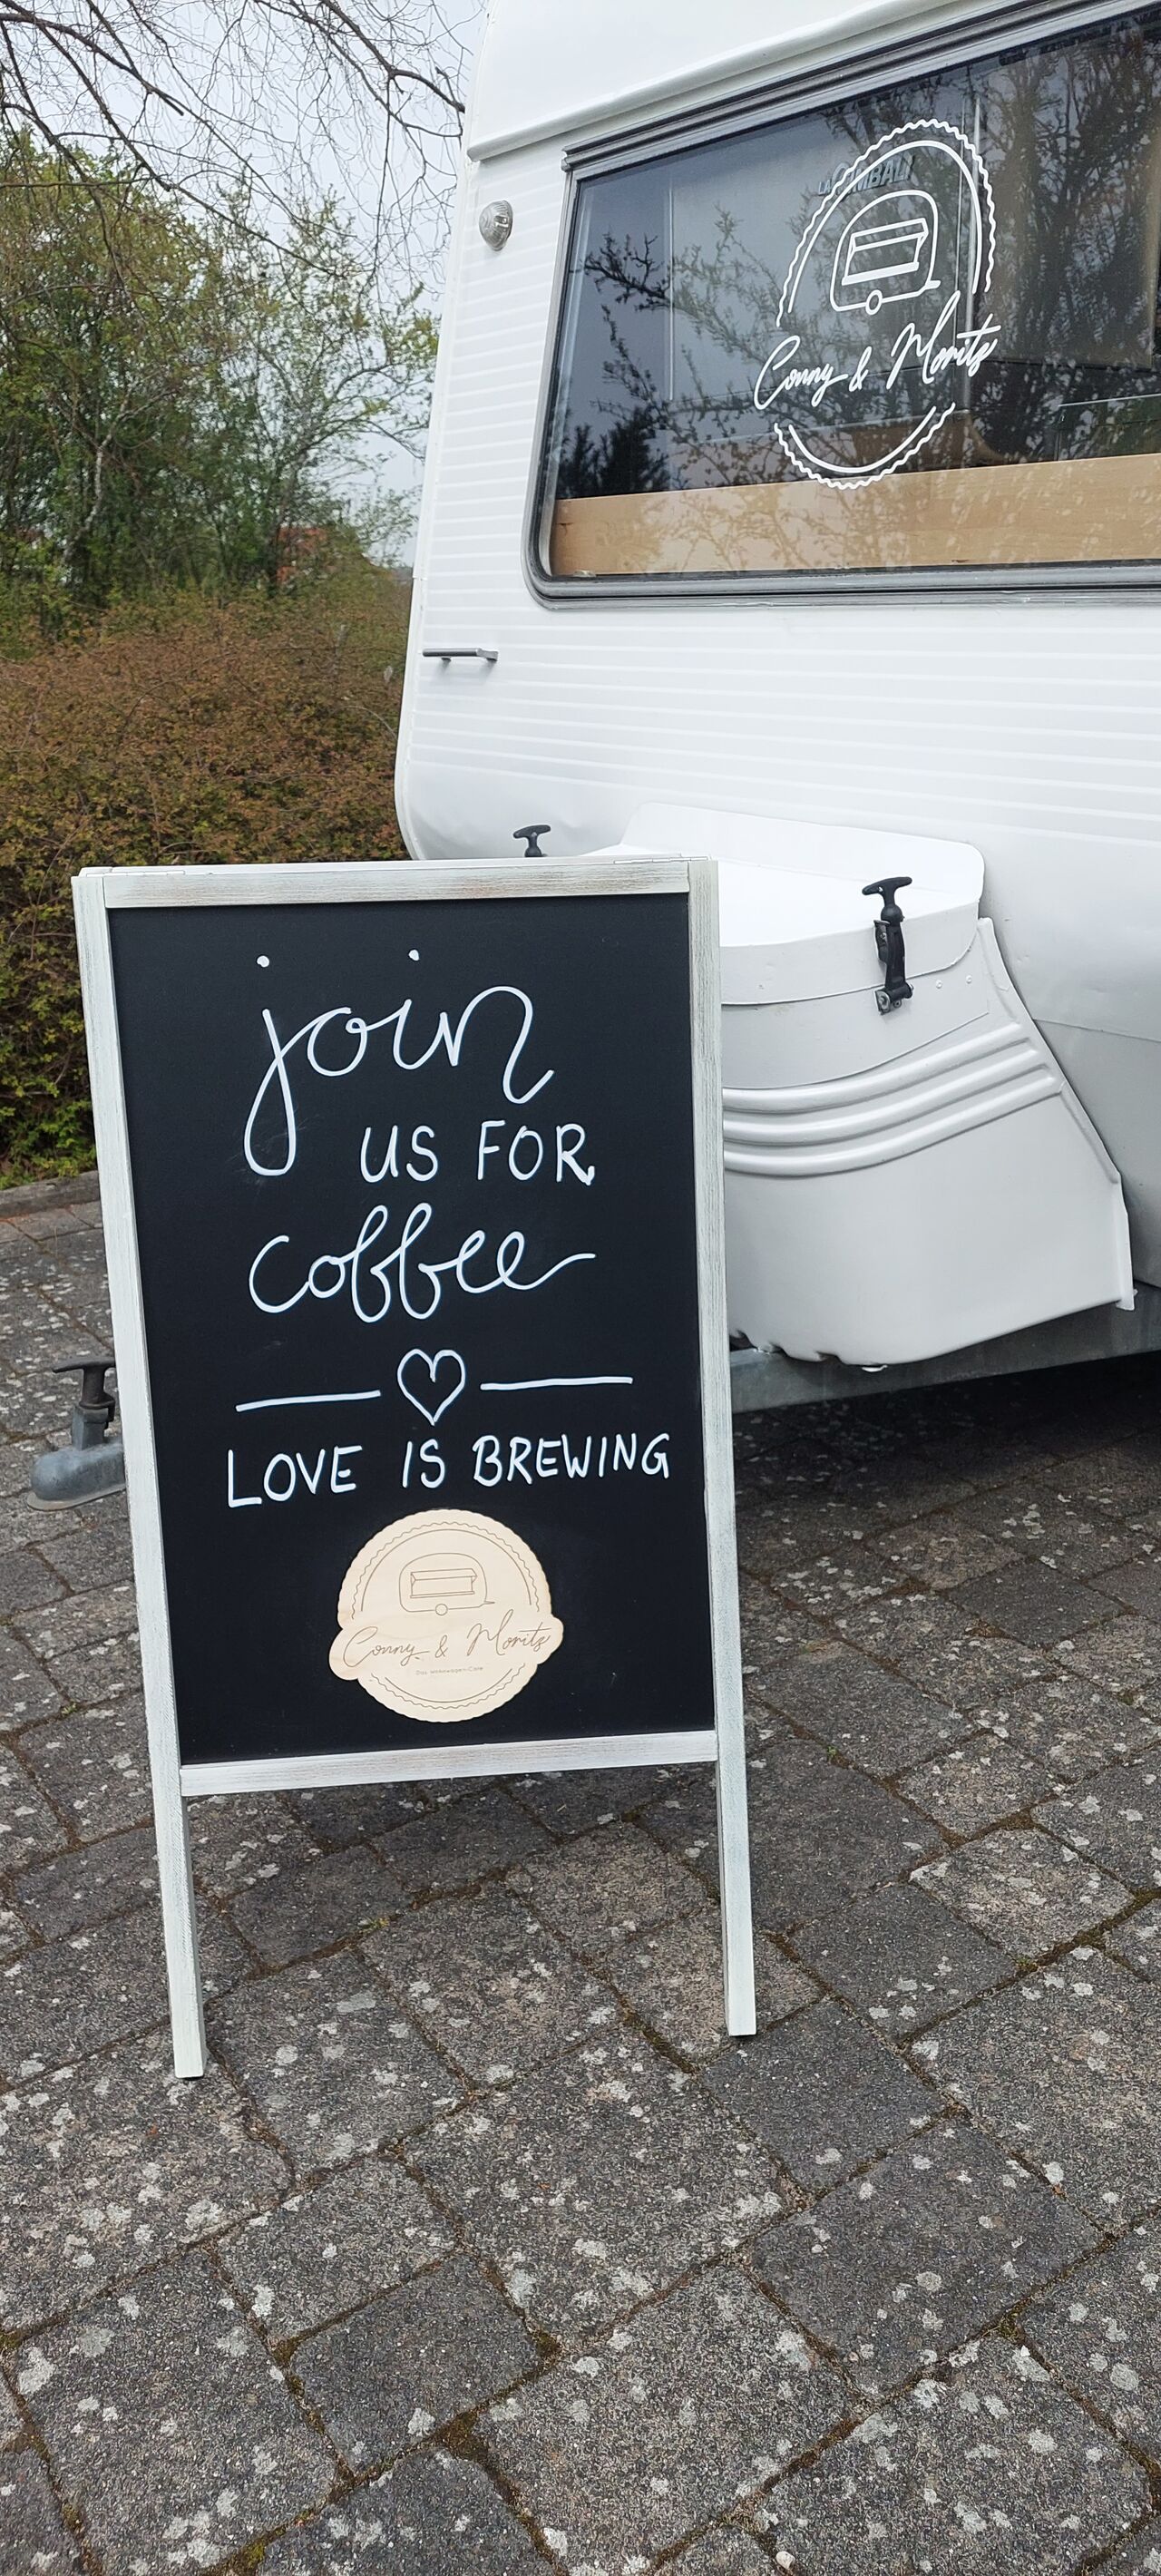 Conny & Moritz
join
US FOR
coffee
LOVE IS BREWING
Conny & Moritz